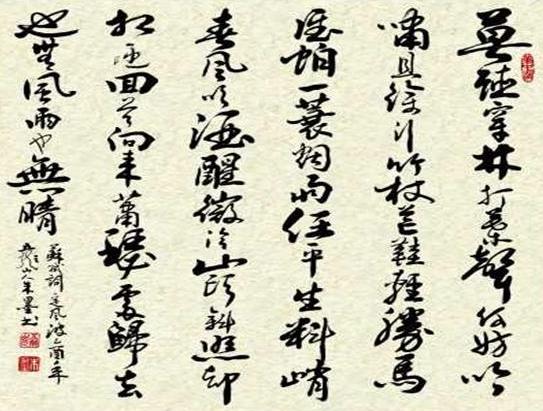 莫聽穿林打葉聲何妨吟
嘯且徐行竹杖芒鞋輕勝馬
誰怕一蓑烟雨任平生料峭
春風吹酒醒微冷山頭斜照却
相迎回首向來蕭瑟處歸去
也無風雨也無晴
蘇軾詞定風波乙酉年
墨書